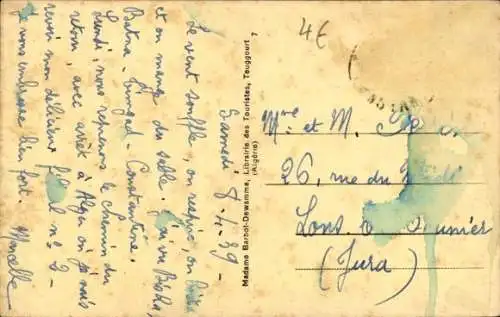 Samedi 8-4-39 -
Le vent souffle, on respire, on
et on mange du sable. J'ai vu Biskra,
Batna - Timgad - Constantine.
Lundi, nous reprenons le chemin du
retour, avec arrêt à Alger où je vais
revoir mon délicieux
Je vous embrasse bien fort. Marcelle
Madame Barbot-Dewamme, Librairie des Touristes, Touggourt
(Algérie)
4E
Mme et M.
26, rue du
Lons
(Jura)